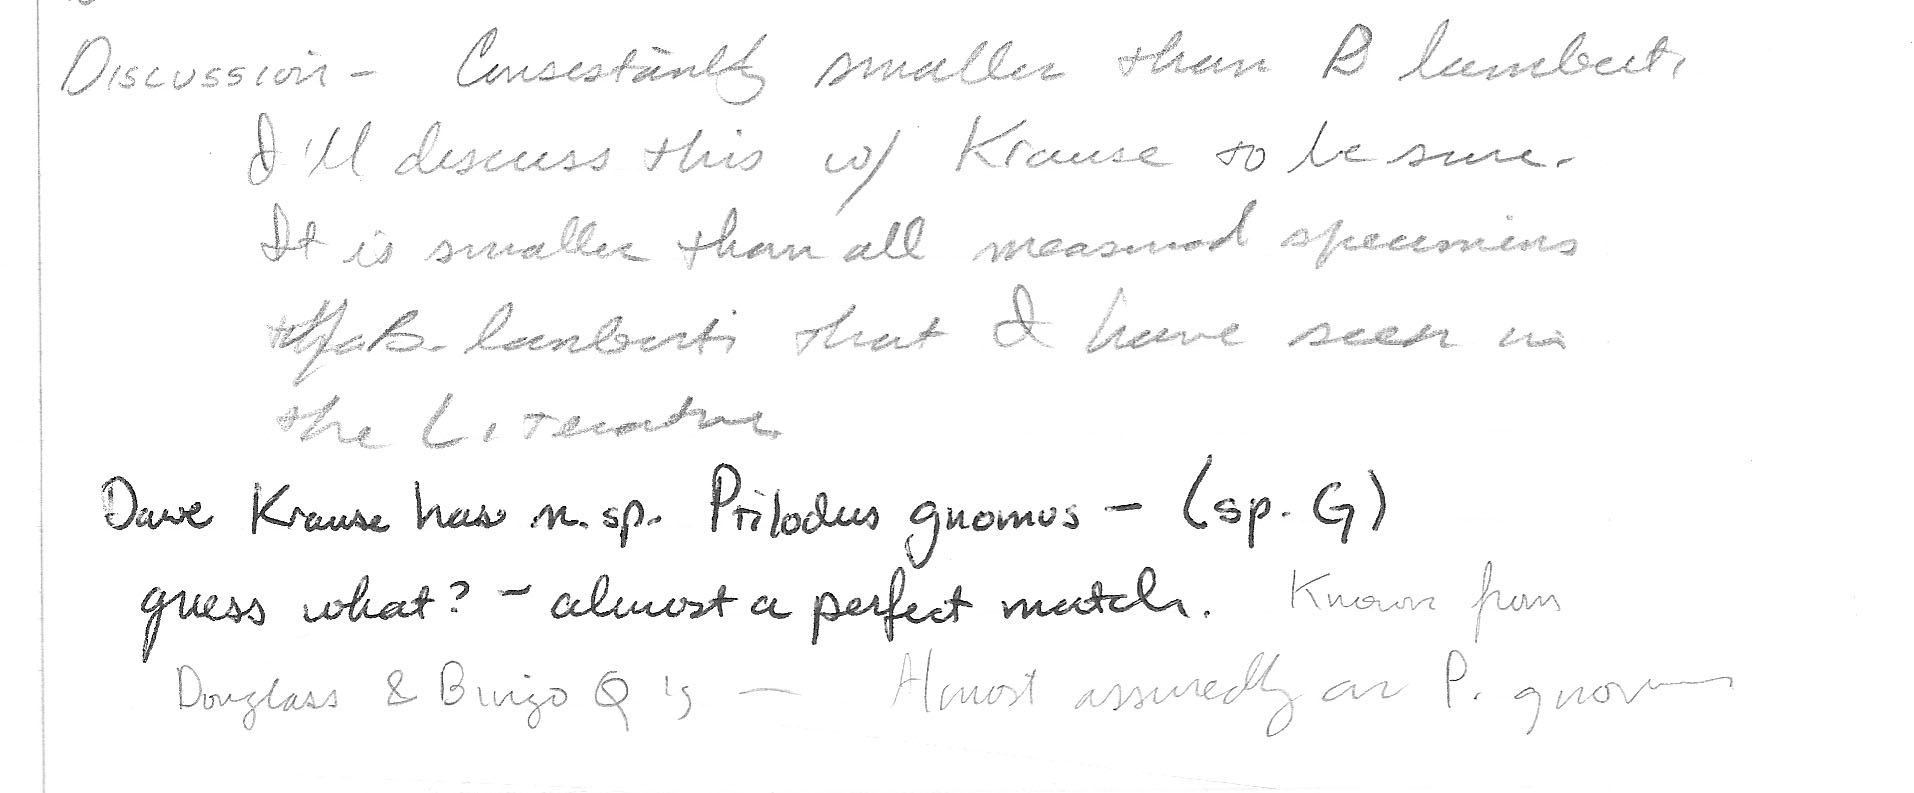 Discussion - Consistantly smaller than B lamberti
I'll discuss this w/ Krause to be sure.
It is smaller than all measured specimens
B. lamberti that I have seen in
the Literature
Dave Krause has n. sp. Ptilodus gnomus - (sp. G)
guess what? - almost a perfect match. Known from
Douglass & Bingo Q's - Almost assuredly a P. gnomus